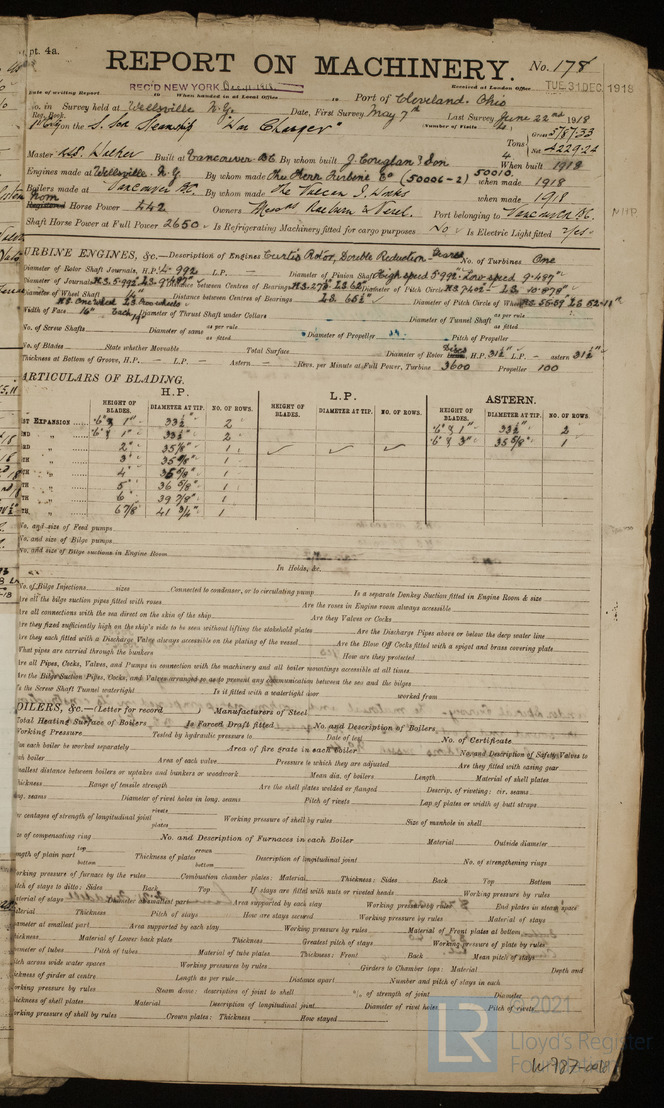 pt. 4a.
REPORT ON MACHINERY.
No. 178
REC'D NEW YORK Dec. 11. 1918
Received at London Office TUE. 31 DEC. 1918
Date of writing Report When handed in at Local Office Port of Cleveland. Ohio
No. in Survey held at Wellsville N.Y. Date, First Survey May 7th Last Survey June 22nd 1918
Reg. Book. (Number of Visits
on the S. Sch Steamship "War Charger" Tons Gross 5787.33 Net 4229.22
Master Walker Built at Vancouver BC By whom built J. Coughlan & Son When built 1918
Engines made at Wellsville N.Y By whom made The Kerr Turbine Co (50006-2) 50010. when made 1918
Boilers made at Vancouver BC. By whom made The Vulcan I. Works when made 1918
Nom Registered Horse Power 442 Owners Port belonging to Vancouver BC.
Shaft Horse Power at Full Power 2650 Is Refrigerating Machinery fitted for cargo purposes No Is Electric Light fitted Yes
TURBINE ENGINES, &c.—Description of Engines Curtis Rotor, Double Reduction Geared No. of Turbines One
Diameter of Rotor Shaft Journals, H.P. L.P. — Diameter of Pinion Shaft High speed 5.992" Low speed 9.487"
Diameter of Journals H.S. 5.992" L.S. 9.487" Distance between Centres of Bearings H.S. 27½" L.S. 62" Diameter of Pitch Circle H.S. 7.402" L.S. 10.878"
Diameter of Wheel Shaft Distance between Centres of Bearings L.S. 65½" Diameter of Pitch Circle of Wheel
Width of Face 16" Each Diameter of Thrust Shaft under Collars Diameter of Tunnel Shaft as per rule as fitted
No. of Screw Shafts Diameter of same as per rule as fitted Diameter of Propeller Pitch of Propeller
No. of Blades State whether Moveable Total Surface Diameter of Rotor Discs H.P. 31½" L.P. — astern 31½"
Thickness at Bottom of Groove, H.P. — L.P. — Astern — Revs. per Minute at Full Power, Turbine 3600 Propeller 100
PARTICULARS OF BLADING.
H.P. L.P. ASTERN.
HEIGHT OF BLADES. DIAMETER AT TIP. NO. OF ROWS. HEIGHT OF BLADES. DIAMETER AT TIP. NO. OF ROWS. HEIGHT OF BLADES. DIAMETER AT TIP. NO. OF ROWS.
1ST EXPANSION 1" 33½" 2 1" 33½" 2
2ND " 1" 33½" 2 3" 35⅝" 1
3RD " 2" 35⅝" 1
4TH " 3" 35⅝" 1
5TH " 4" 35⅝" 1
6TH " 5" 36⅝" 1
7TH " 6" 39⅞" 1
8TH " 6⅞ 41¾" 1
No. and size of Feed pumps
No. and size of Bilge pumps
No. and size of Bilge suctions in Engine Room
In Holds, &c.
No. of Bilge Injections sizes Connected to condenser, or to circulating pump Is a separate Donkey Suction fitted in Engine Room & size
Are all the bilge suction pipes fitted with roses Are the roses in Engine room always accessible
Are all connections with the sea direct on the skin of the ship Are they Valves or Cocks
Are they fixed sufficiently high on the ship's side to be seen without lifting the stokehold plates Are the Discharge Pipes above or below the deep water line
Are they each fitted with a Discharge Valve always accessible on the plating of the vessel Are the Blow Off Cocks fitted with a spigot and brass covering plate
What pipes are carried through the bunkers How are they protected
Are all Pipes, Cocks, Valves, and Pumps in connection with the machinery and all boiler mountings accessible at all times
Are the Bilge Suction Pipes, Cocks, and Valves arranged so as to prevent any communication between the sea and the bilges
Is the Screw Shaft Tunnel watertight Is it fitted with a watertight door worked from
BOILERS, &c.—(Letter for record Manufacturers of Steel
Total Heating Surface of Boilers Is Forced Draft fitted No. and Description of Boilers
Working Pressure Tested by hydraulic pressure to Date of test No. of Certificate
Can each boiler be worked separately Area of fire grate in each boiler No. and Description of Safety Valves to
each boiler Area of each valve Pressure to which they are adjusted Are they fitted with easing gear
Smallest distance between boilers or uptakes and bunkers or woodwork Mean dia. of boilers Length Material of shell plates
Thickness Range of tensile strength Are the shell plates welded or flanged Descrip. of riveting: cir. seams
long. seams Diameter of rivet holes in long. seams Pitch of rivets Lap of plates or width of butt straps
Per centages of strength of longitudinal joint rivets plates Working pressure of shell by rules Size of manhole in shell
Size of compensating ring No. and Description of Furnaces in each Boiler Material Outside diameter
Length of plain part top bottom Thickness of plates crown bottom Description of longitudinal joint No. of strengthening rings
Working pressure of furnace by the rules Combustion chamber plates: Material Thickness: Sides Back Top Bottom
Pitch of stays to ditto: Sides Back Top If stays are fitted with nuts or riveted heads Working pressure by rules
Material of stays Diameter at smallest part Area supported by each stay Working pressure by rules End plates in steam space
Material Thickness Pitch of stays How are stays secured Working pressure by rules Material of stays
Diameter at smallest part Area supported by each stay Working pressure by rules Material of Front plates at bottom
Thickness Material of Lower back plate Thickness Greatest pitch of stays Working pressure of plate by rules
Diameter of tubes Pitch of tubes Material of tube plates Thickness: Front Back Mean pitch of stays
Pitch across wide water spaces Working pressures by rules Girders to Chamber tops: Material Depth and
thickness of girder at centre Length as per rule Distance apart Number and pitch of stays in each
Working pressure by rules Steam dome: description of joint to shell % of strength of joint Diameter
Thickness of shell plates Material Description of longitudinal joint Diameter of rivet holes Pitch of rivets
Working pressure of shell by rules Crown plates: Thickness How stayed
© 2021
LR
Lloyd's Register
Foundation